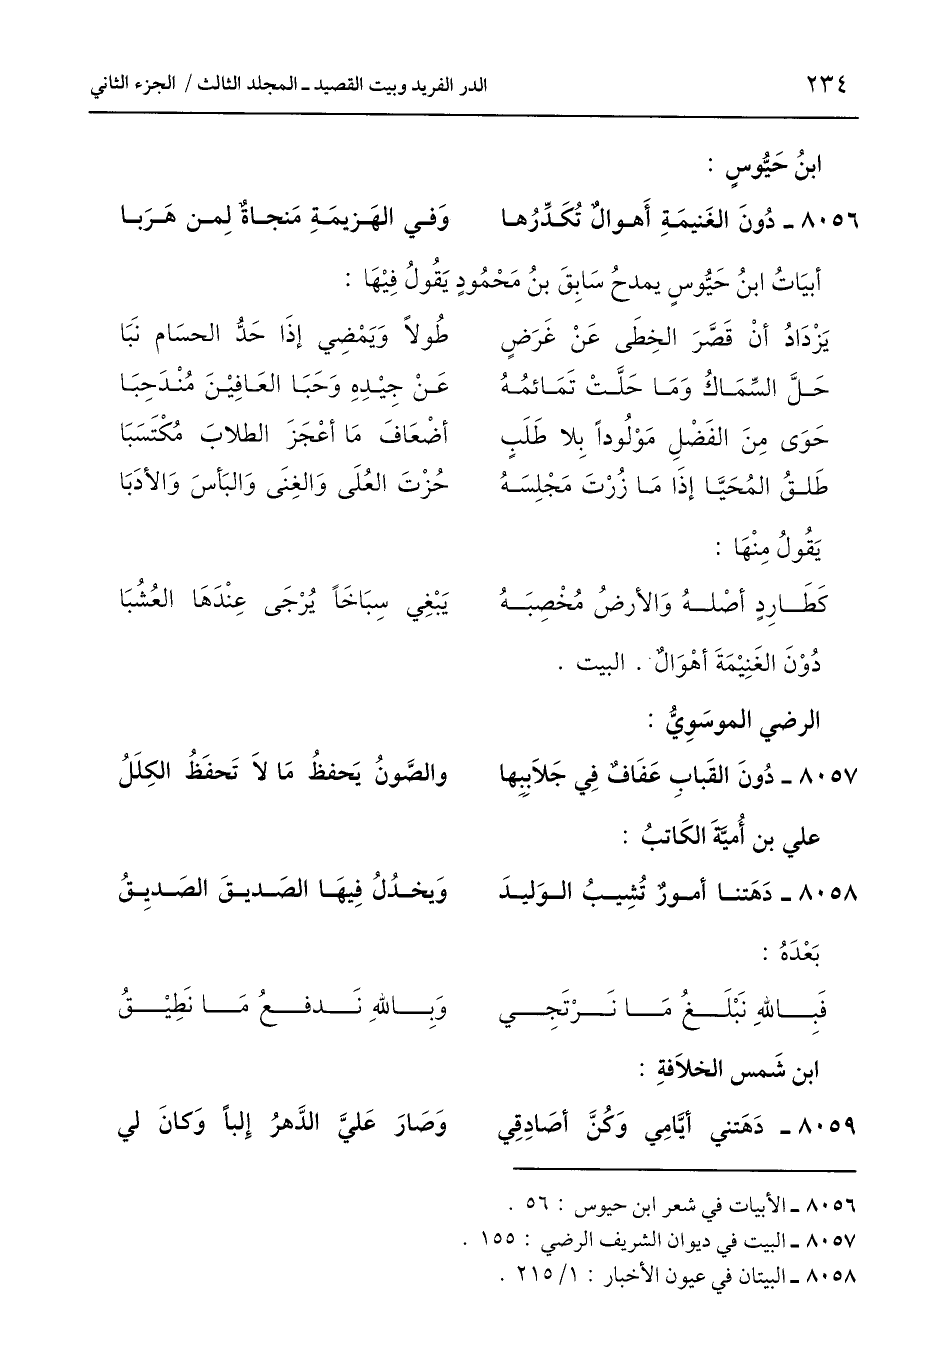 ٢٣٤ الدر الفريد وبيت القصيد ـ المجلد الثالث / الجزء الثاني
ابنُ حَيُّوسٍ :
٨٠٥٦ ـ دُونَ الغَنيمَةِ أَهوالٌ تُكَدِّرُها وَفي الهَزيمَةِ مَنجاةٌ لِمن هَرَبا
أبيَاتُ ابنُ حَيُّوسٍ يمدحُ سَابِقَ بنُ مَحْمُودٍ يَقُولُ فِيْهَا :
يَزْدَادُ أنْ قَصَّرَ الخِطَى عَنْ غَرَضٍ طُولاً وَيَمْضِي إذَا حَدُّ الحسَام نَبَا
حَلَّ السِّمَاكُ وَمَا حَلَّتْ تَمَائمُهُ عَنْ جِيْدِهِ وَحَبَا العَافِيْنَ مُنْدَحِبَا
حَوَى مِنَ الفَضْلِ مَوْلُوداً بِلا طَلَبٍ أضْعَافَ مَا أعْجَزَ الطلابَ مُكْتَسَبَا
طَلقُ المُحَيَّا إذَا مَا زُرْتَ مَجْلِسَهُ حُزْتَ العُلَى وَالغِنَى وَالبَأسَ وَالأدَبَا
يَقُولُ مِنْهَا :
كَطَارِدٍ أصْلهُ وَالأرضُ مُخْصِبَهُ يَبْغِي سِبَاخَاً يُرْجَى عِنْدَهَا العُشُبَا
دُوْنَ الغَنِيْمَةَ أهْوَالٌ . البيت .
الرضي الموسَوِيُّ :
٨٠٥٧ ـ دُونَ القَبابِ عَفَافٌ فِي جَلاَبِبِها والصَّونُ يَحفظُ مَا لاَ تَحفَظُ الكِلَلُ
علي بن أُميَّةَ الكَاتبُ :
٨٠٥٨ ـ دَهَتنا أمورٌ تُشِيبُ الوَليدَ وَيخدُلُ فِيهَا الصَديقَ الصَديِقُ
بَعْدَهُ :
فَبِاللهِ نَبْلَغُ مَا نَرْتَجِي وَبِاللهِ نَدفعُ مَا نَطِيْقُ
ابن شَمس الخلاَفةِ :
٨٠٥٩ ـ دَهَتني أيَّامِي وَكُنَّ أصَادِقِي وَصَارَ عَليَّ الدَّهرُ إلباً وَكانَ لي
٨٠٥٦ ـ الأبيات في شعر ابن حيوس : ٥٦ .
٨٠٥٧ ـ البيت في ديوان الشريف الرضي : ١٥٥ .
٨٠٥٨ ـ البيتان في عيون الأخبار : ١/ ٢١٥ .